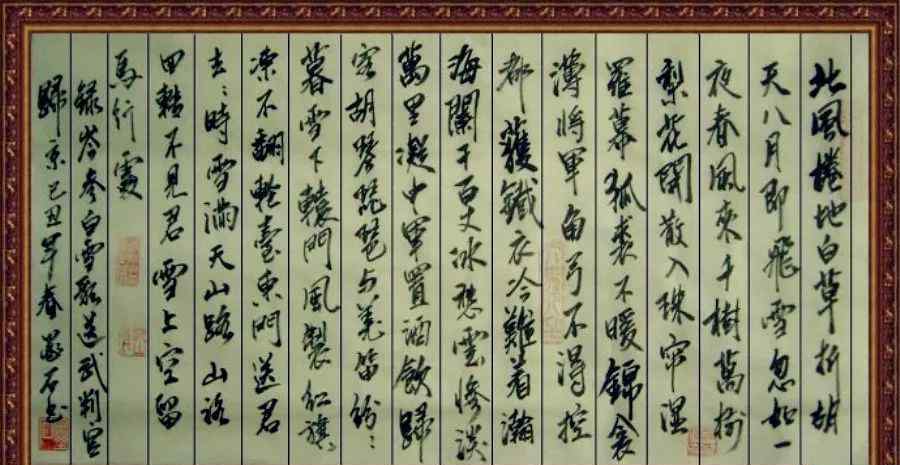 北風捲地白草折胡
天八月即飛雪忽如一
夜春風來千樹萬樹
梨花開散入珠帘濕
羅幕狐裘不暖錦衾
薄將軍角弓不得控
都護鐵衣冷難着瀚
海闌干百丈冰愁雲慘淡
萬里凝中軍置酒飲歸
客胡琴琵琶与羌笛紛々
暮雪下轅門風掣紅旗
凍不翻輪臺東門送君
去々時雪滿天山路山路
回轉不見君雪上空留
馬行處
錄岑參白雪歌送武判官
歸京己丑年春石书